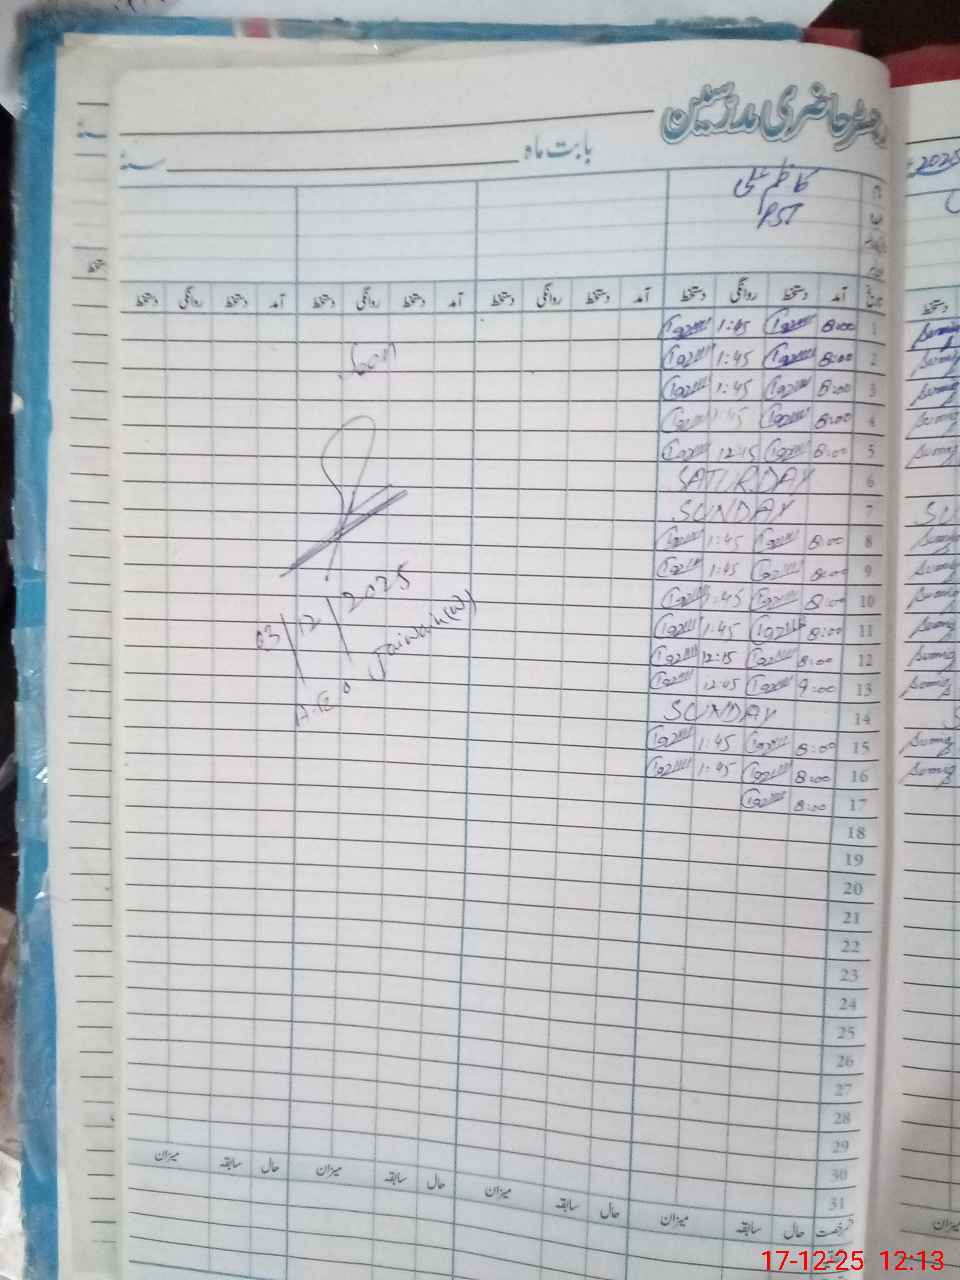 رجسٹر حاضری مدرسین
بابت ماہ سنہ
2025
کاظم علی
PST
آمد دستخط روانگی دستخط آمد دستخط روانگی دستخط آمد دستخط روانگی دستخط آمد دستخط روانگی دستخط
1 8:00 1:45
2 8:00 1:45
3 8:00 1:45
4 8:00 1:45
5 8:00 12:15
6 SATURDAY
7 SUNDAY
8 8:00 1:45
9 8:00 1:45
10 8:00 1:45
11 8:00 1:45
12 8:00 12:15
13 9:00 12:45
14 SUNDAY
15 8:00 1:45
16 8:00 1:45
17 8:00
18
19
20
21
22
23
24
25
26
27
28
29
30
31
Seen
03/12/2025
رخصت حال سابقہ میزان حال سابقہ میزان حال سابقہ میزان حال سابقہ میزان
17-12-25 12:13